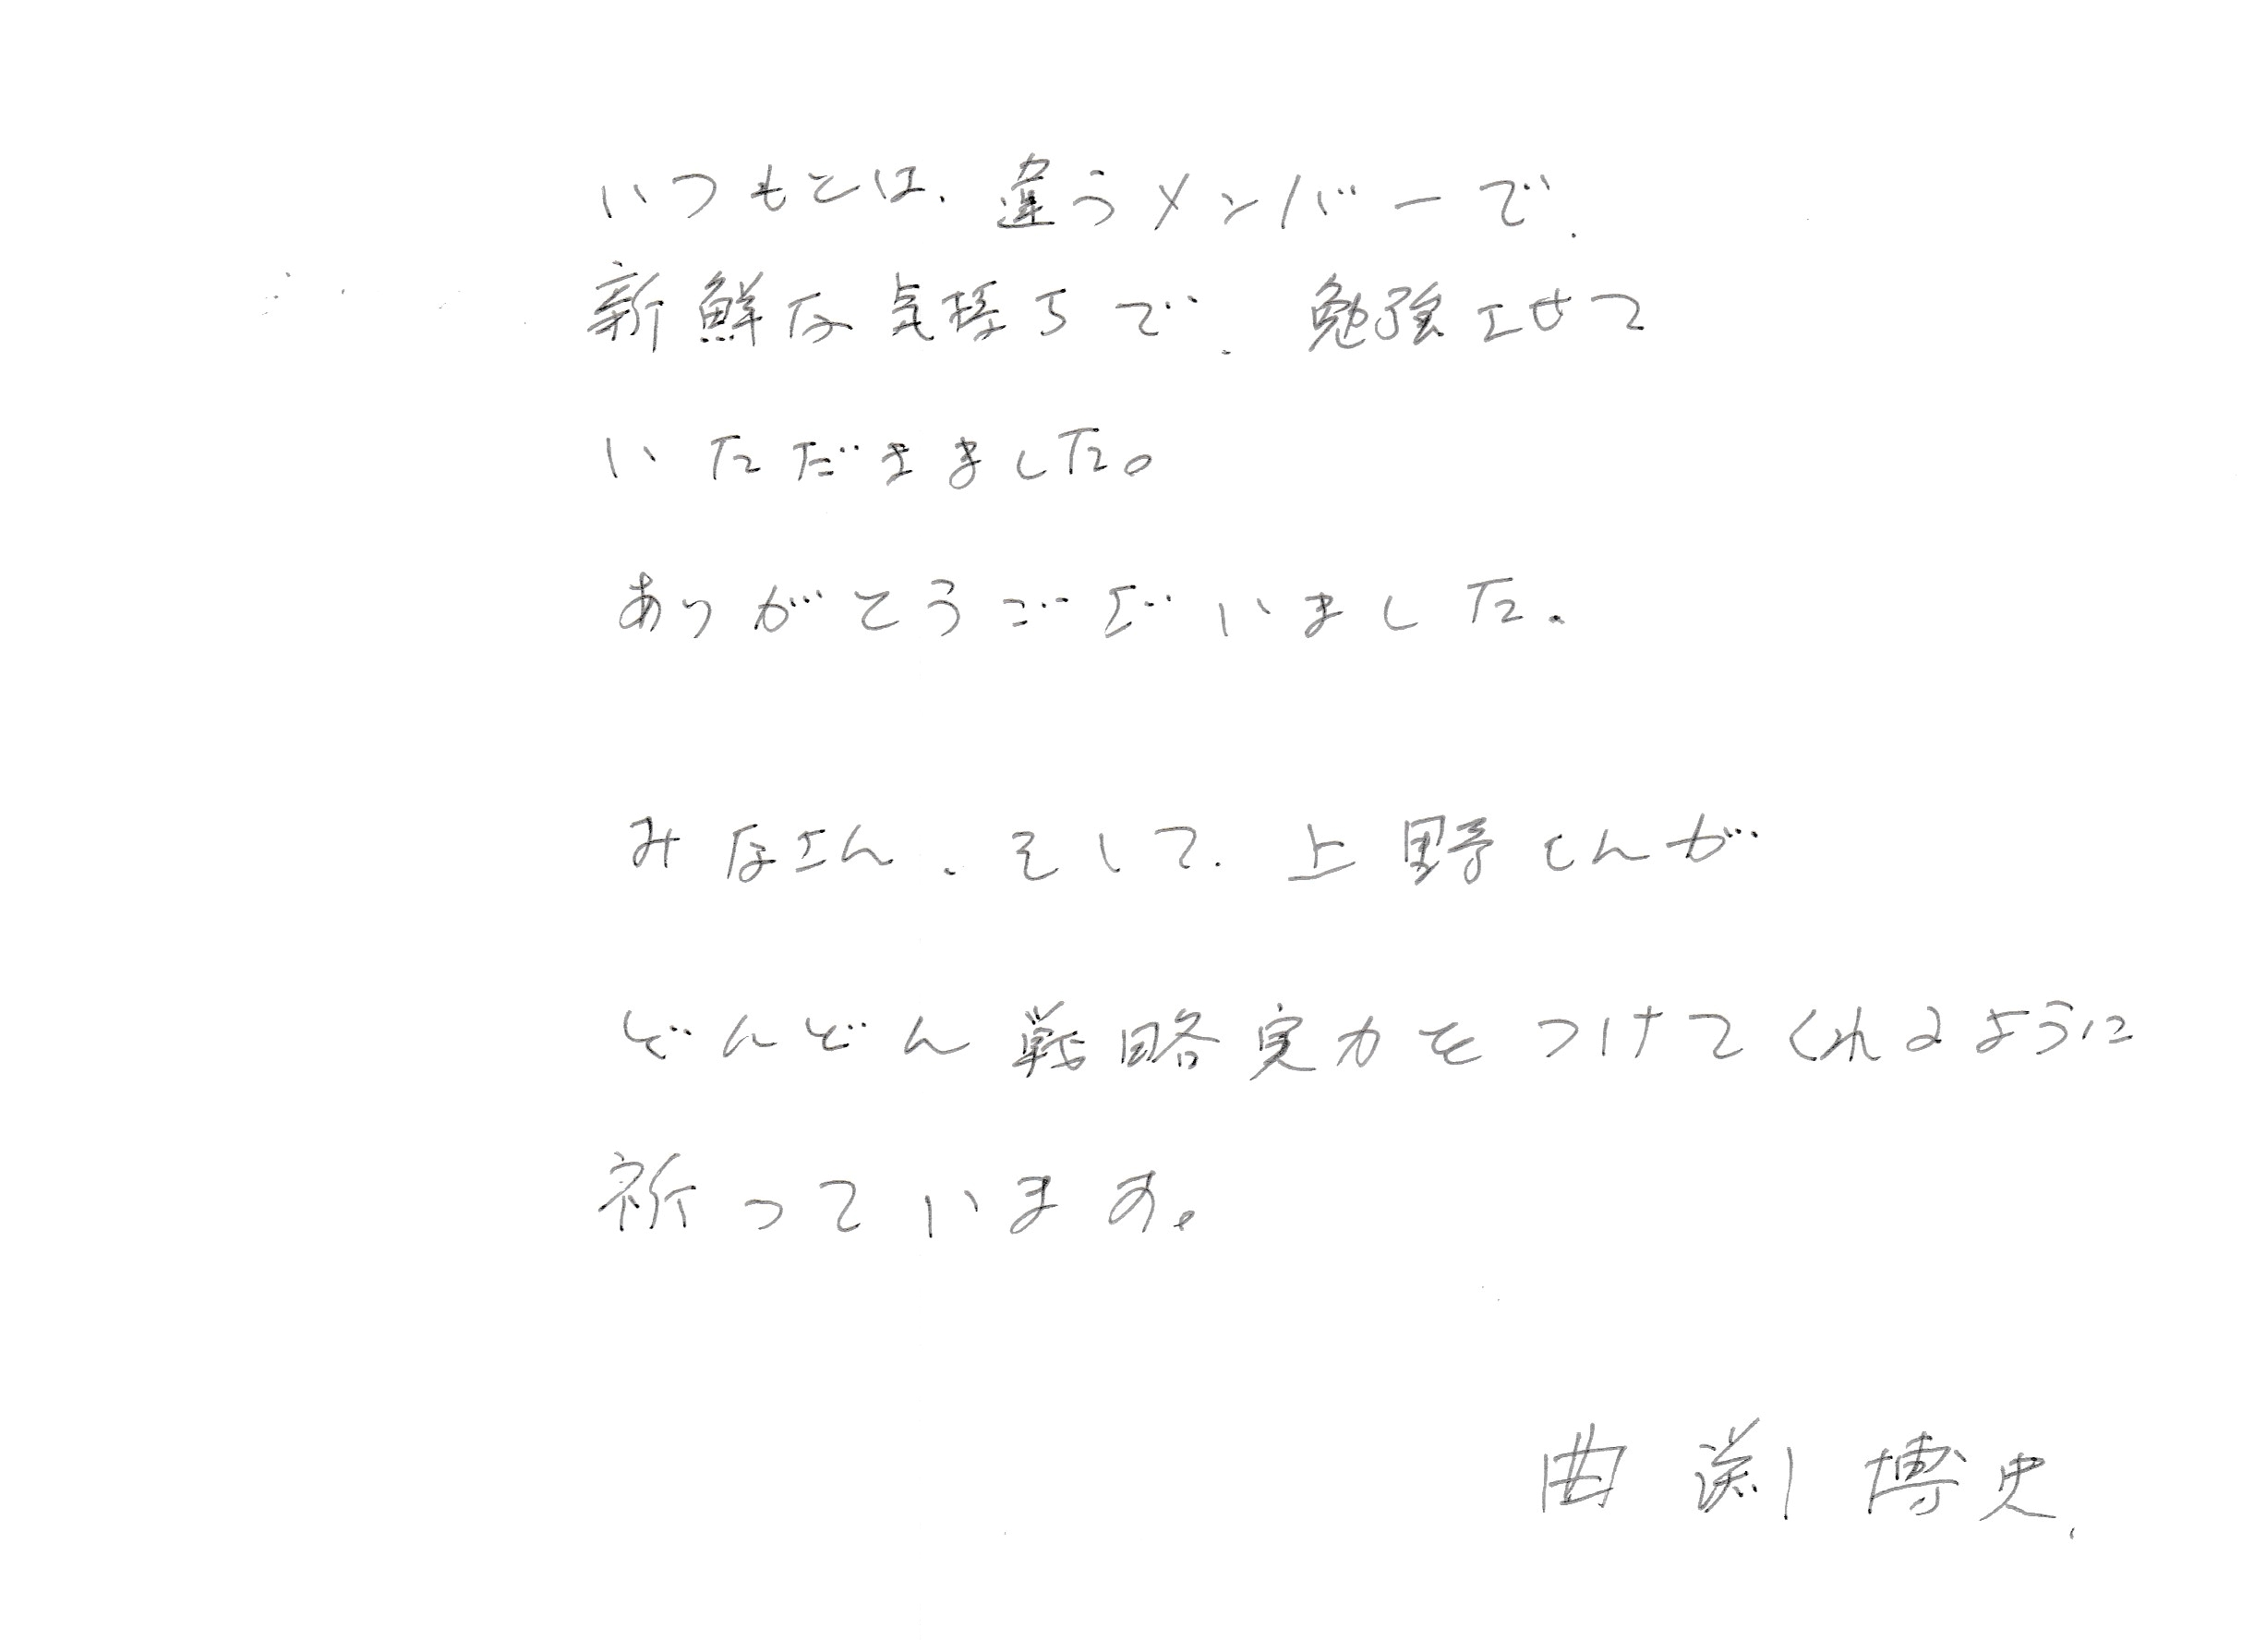 いつもとは、違うメンバーで、
新鮮な気持ちで、勉強させて
いただきました。
ありがとうございました。
みなさん、そして、上野さんが
どんどん戦略実力をつけてくれるように
祈っています。
曲渕博史.